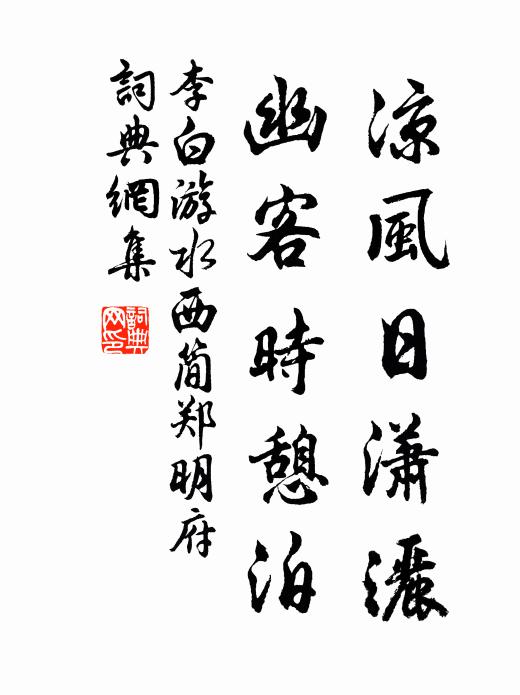 涼風日瀟灑
幽客時憩泊
李白游水西简郑明府
詞典網集
詞典网印